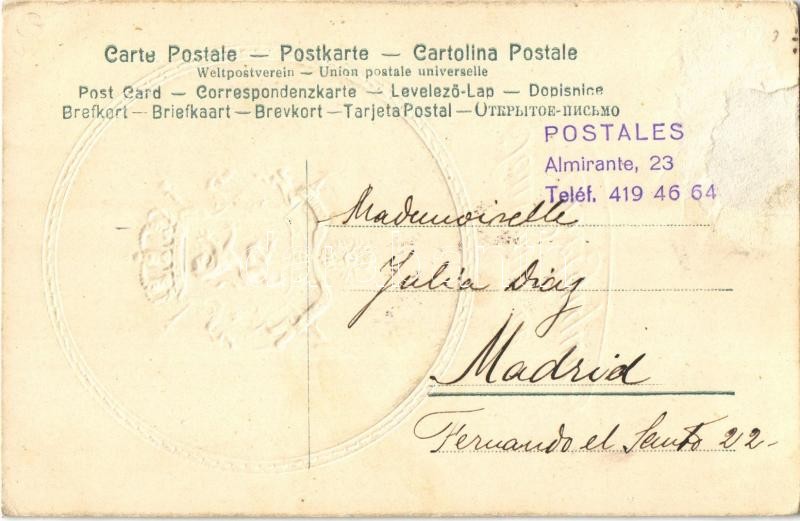 Carte Postale — Postkarte — Cartolina Postale
Weltpostverein — Union postale universelle
Post Card — Correspondenzkarte — Levelező-Lap — Dopisnice
Brefkort — Briefkaart — Brevkort — Tarjeta Postal — Открытое-письмо
POSTALES
Almirante, 23
Teléf. 419 46 64
Mademoiselle
Julia Diaz
Madrid
Fernando el Santo 22-